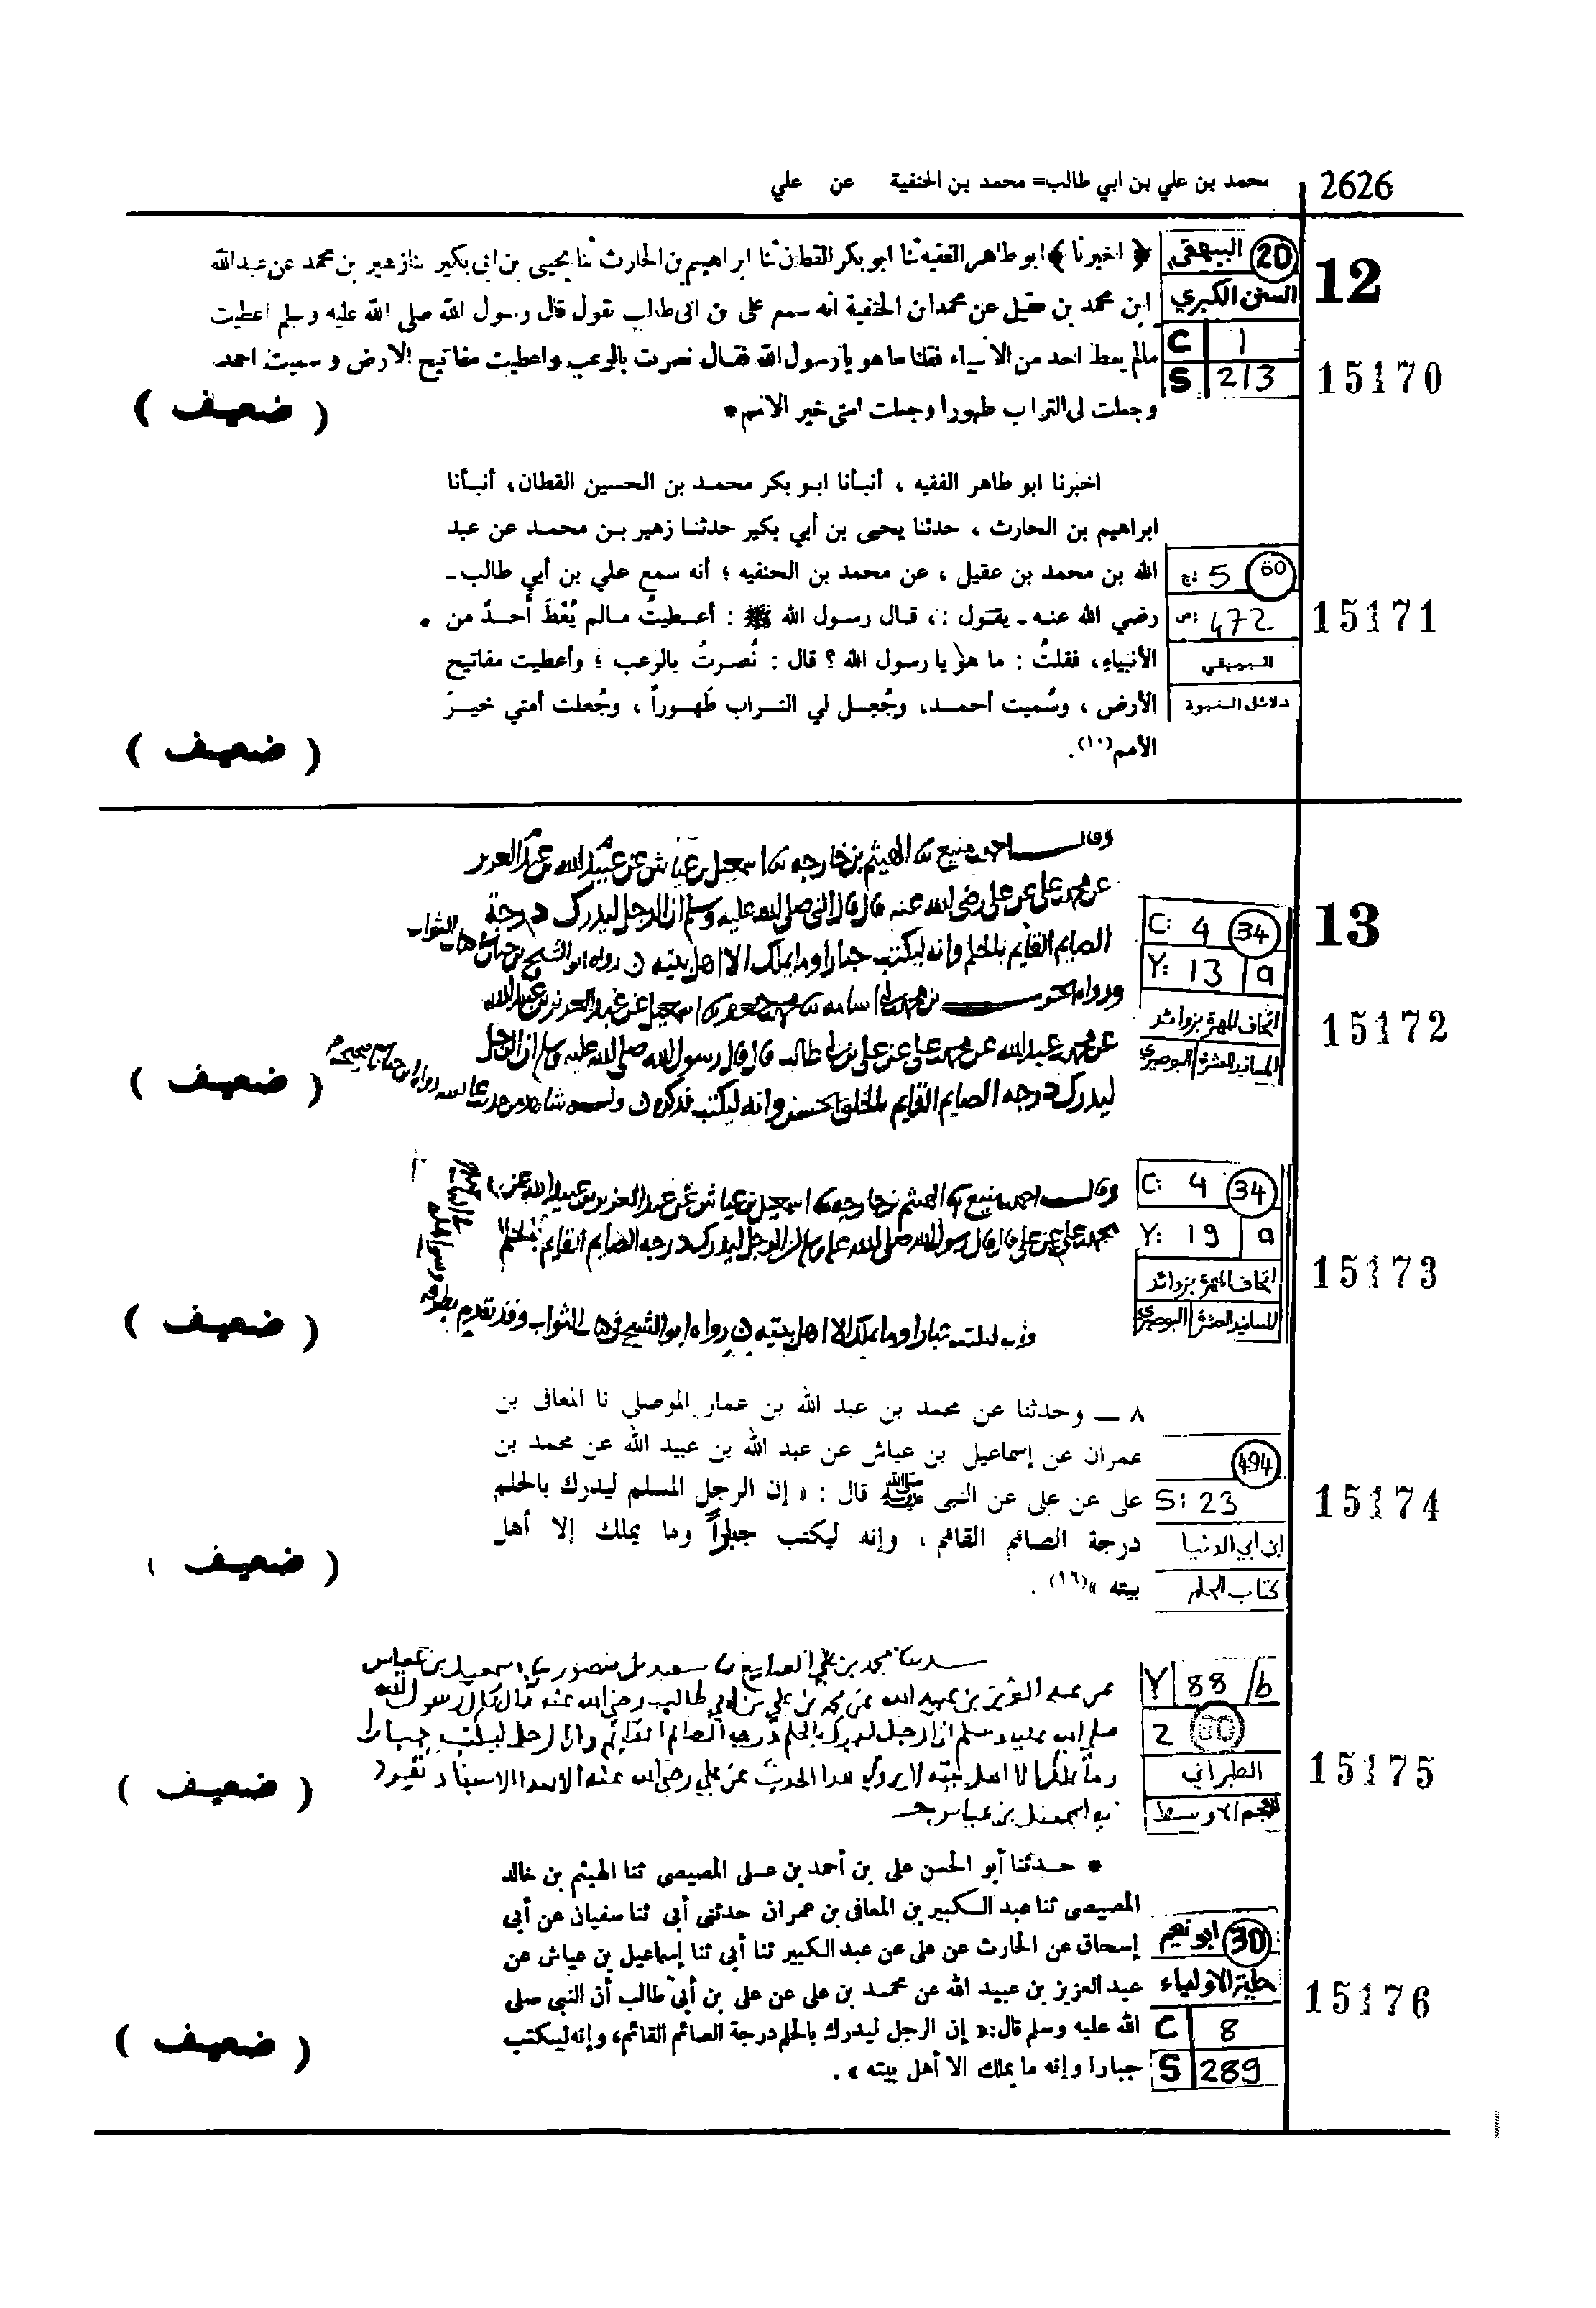 محمد بن علي بن ابي طالب= محمد بن الحنفية عن علي
2626
12
20 البيهقي
السنن الكبري
C 1
S 213
15170
﴿ اخبرنا ﴾ ابو طاهر الفقيه ثنا ابو بكر القطان ثنا ابراهيم بن الحارث ثنا يحيى بن ابى بكير ثنا زهير بن محمد عن عبدالله
ابن محمد بن عقيل عن محمد ابن الحنفية انه سمع على بن ابى طالب يقول قال رسول الله صلى الله عليه وسلم اعطيت
مالم يعط احد من الانبياء فقلنا ما هو يا رسول الله فقال نصرت بالرعب واعطيت مفاتيح الارض وسميت احمد
وجعلت لى التراب طهورا وجعلت امتى خير الامم *
( ضعيف )
اخبرنا ابو طاهر الفقيه ، أنبأنا ابو بكر محمد بن الحسين القطان، أنبأنا
ابراهيم بن الحارث ، حدثنا يحيى بن أبي بكير حدثنا زهير بن محمد عن عبد
الله بن محمد بن عقيل ، عن محمد بن الحنفيه ؛ أنه سمع علي بن أبي طالب -
رضي الله عنه - يقول :، قال رسول الله ﷺ : أعطيتُ مالم يُعْطَ أحدٌ من
الأنبياءِ، فقلتُ : ما هو يا رسول الله ؟ قال : نُصرتُ بالرعب ؛ وأعطيت مفاتيح
الأرض ، وسُميت أحمد، وجُعِل لي التراب طَهوراً ، وجُعلت أمتي خيرَ
الأمم(١٠).
60 ج: 5
ص: 472
البيهقي
دلائل النبوة
15171
( ضعيف )
13
C: 4 34
Y: 13 a
اتحاف المهرة بزوائد
المسانيد العشرة البوصيري
15172
وقال احمد بن منيع ثنا الهيثم بن خارجه ثنا اسمعيل بن عياش عن عبد الله بن عبد العزيز
عن محمد بن علي عن علي رضى الله عنه قال قال النبى صلى الله عليه وسلم ان الرجل ليدرك درجة
الصايم القايم بالحلم وانه ليكتب جبارا وما يملك الا اهل بيته رواه ابو الشيخ بن حيان الثواب
عن محمد بن عبد الله عن محمد بن علي عن علي بن ابى طالب قال قال رسول الله صلى الله عليه وسلم ان الرجل
ليدرك درجه الصايم القايم بالخلق الحسن وانه ليكتب فذكره
( ضعيف )
C: 4 34
Y: 19 a
اتحاف المهرة بزوائد
المسانيد العشرة البوصيري
15173
وقال احمد بن منيع ثنا الهيثم بن خارجه ثنا اسمعيل بن عياش عن عبد العزيز بن عبيد الله عن
محمد بن علي عن علي قال قال رسول الله صلى الله عليه وسلم ان الرجل ليدرك درجه الصايم القايم بالحلم
وانه ليكتب جبارا وما يملك الا اهل بيته رواه ابو الشيخ في الثواب وقد تقدم بطرقه
( ضعيف )
٨ — وحدثنا عن محمد بن عبد الله بن عمار الموصلى نا المعافى بن
عمران عن إسماعيل بن عياش عن عبد الله بن عبيد الله عن محمد بن
على عن على عن النبى ﷺ قال : « إن الرجل المسلم ليدرك بالحلم
درجة الصائم القائم ، وإنه ليكتب جباراً وما يملك إلا أهل
بيته »(١٦) .
494
S: 23
ابن أبي الدنيا
كتاب الحلم
15174
( ضعيف )
Y 88 /b
2
الطبراني
المعجم الاوسط
15175
حدثنا محمد بن علي الصايغ ثنا سعيد بن منصور ثنا اسمعيل بن عياش
عن عبد العزيز بن عبيد الله عن محمد بن علي بن ابي طالب رضي الله عنه قال قال رسول الله
صلى الله عليه وسلم ان الرجل ليدرك بالحلم درجه الصائم القايم وان الرجل ليكتب جبارا
وما يملك الا اهل بيته لا يروى هذا الحديث عن علي رضي الله عنه الا بهذا الاسناد تفرد
به اسمعيل بن عياش
( ضعيف )
* حدثنا أبو الحسن على بن أحمد بن على المصيصى ثنا الهيثم بن خالد
المصيصى ثنا عبد الكبير بن المعافى بن عمران حدثنى أبى ثنا سفيان عن أبى
إسحاق عن الحارث عن على عن عبد الكبير ثنا أبى ثنا إسماعيل بن عياش عن
عبد العزيز بن عبيد الله عن محمد بن على عن على بن أبى طالب أن النبى صلى
الله عليه وسلم قال: « إن الرجل ليدرك بالحلم درجة الصائم القائم، وإنه ليكتب
جبارا وإنه ما يملك الا أهل بيته » .
30 ابو نعيم
حلية الاولياء
C 8
S 289
15176
( ضعيف )